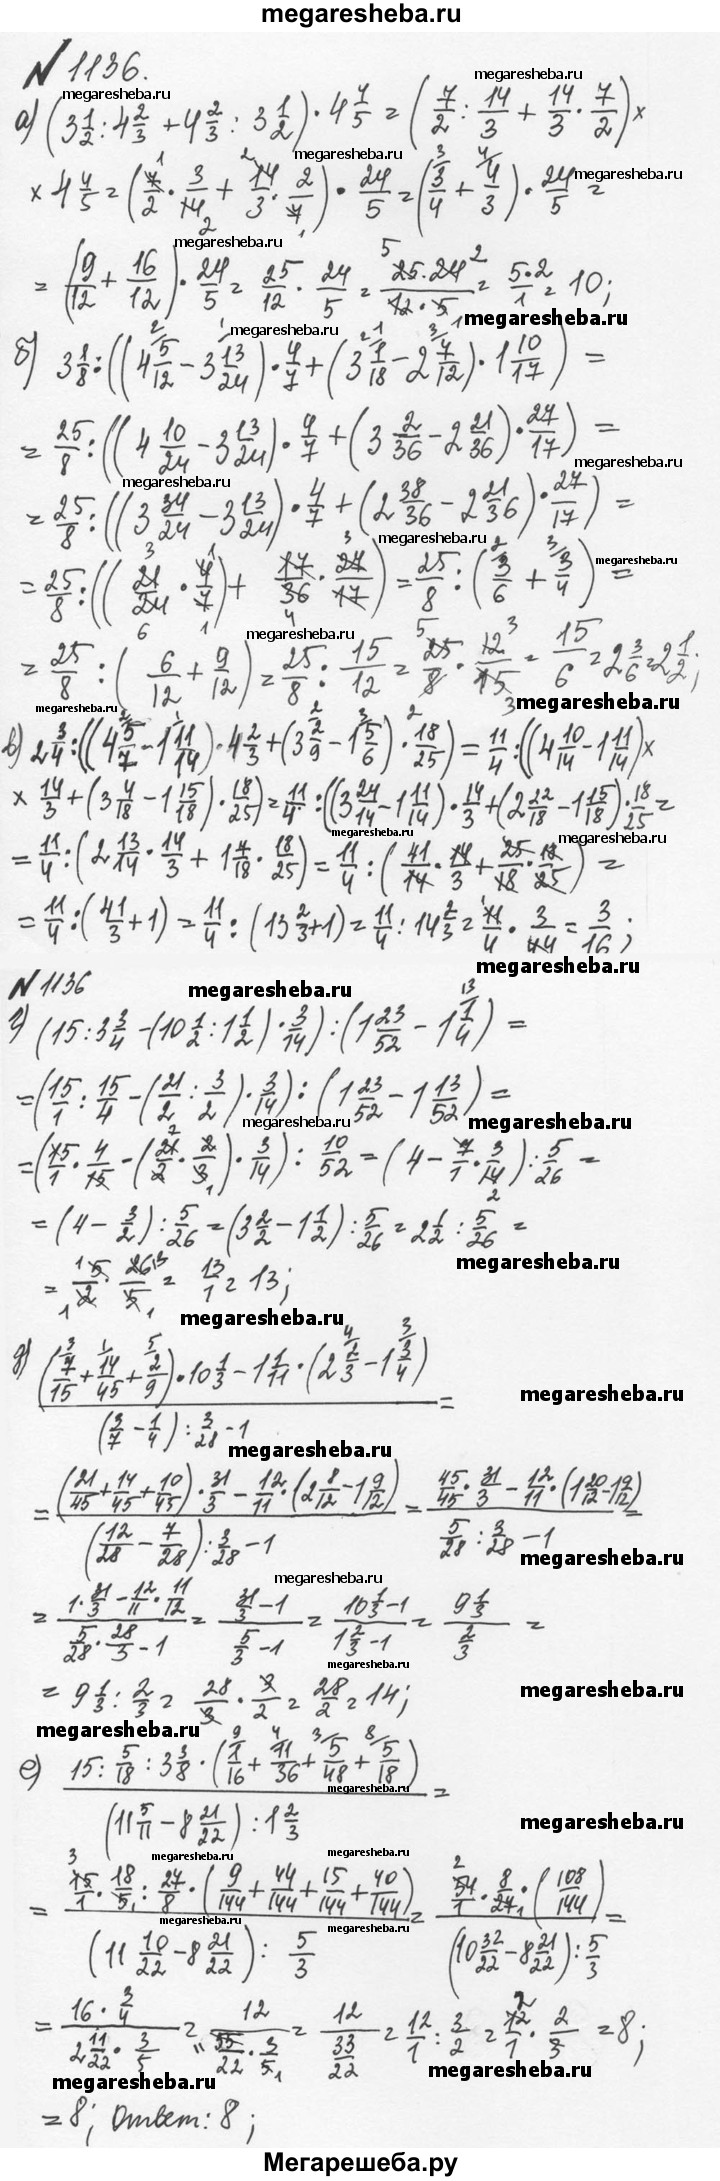 megaresheba.ru
№ 1136.
а) (3 1/2 : 4 2/3 + 4 2/3 : 3 1/2) · 4 4/5 = (7/2 : 14/3 + 14/3 · 7/2) ×
× 4 4/5 = (7/2 · 3/14 + 14/3 · 2/7) · 24/5 = (3/4 + 4/3) · 24/5 =
= (9/12 + 16/12) · 24/5 = 25/12 · 24/5 = 25·24/12·5 = 5·2/1 = 10;
б) 3 1/8 : ((4 5/12 - 3 13/24) · 4/7 + (3 1/18 - 2 7/12) · 1 10/17) =
= 25/8 : ((4 10/24 - 3 13/24) · 4/7 + (3 2/36 - 2 21/36) · 27/17) =
= 25/8 : ((3 34/24 - 3 13/24) · 4/7 + (2 38/36 - 2 21/36) · 27/17) =
= 25/8 : ((21/24 · 4/7) + 17/36 · 27/17) = 25/8 : (3/6 + 3/4) =
= 25/8 : (6/12 + 9/12) = 25/8 : 15/12 = 25/8 · 12/15 = 15/6 = 2 3/6 = 2 1/2;
в) 2 3/4 : ((4 5/7 - 1 11/14) · 4 2/3 + (3 2/9 - 1 5/6) · 18/25) = 11/4 : ((4 10/14 - 1 11/14) ×
× 14/3 + (3 4/18 - 1 15/18) · 18/25) = 11/4 : ((3 24/14 - 1 11/14) · 14/3 + (2 22/18 - 1 15/18) · 18/25 =
= 11/4 : (2 13/14 · 14/3 + 1 7/18 · 18/25) = 11/4 : (41/14 · 14/3 + 25/18 · 18/25) =
= 11/4 : (41/3 + 1) = 11/4 : (13 2/3 + 1) = 11/4 : 14 2/3 = 11/4 · 3/44 = 3/16;
megaresheba.ru
№ 1136
megaresheba.ru
г) (15 : 3 3/4 - (10 1/2 : 1 1/2) · 3/14) : (1 23/52 - 1 1/4) =
= (15/1 : 15/4 - (21/2 : 3/2) · 3/14) : (1 23/52 - 1 13/52) =
= (15/1 · 4/15 - (21/2 · 2/3) · 3/14) : 10/52 = (4 - 7/1 · 3/14) : 5/26 =
= (4 - 3/2) : 5/26 = (3 2/2 - 1 1/2) : 5/26 = 2 1/2 : 5/26 =
= 5/2 · 26/5 = 13/1 = 13;
megaresheba.ru
д) (7/15 + 14/45 + 2/9) · 10 1/3 - 1 1/11 · (2 2/3 - 1 3/4) =
(3/7 - 1/4) : 3/28 - 1
= (21/45 + 14/45 + 10/45) · 31/3 - 12/11 · (2 8/12 - 1 9/12) = 45/45 · 31/3 - 12/11 · (1 20/12 - 1 9/12) =
(12/28 - 7/28) : 3/28 - 1 5/28 : 3/28 - 1
= 1 · 31/3 - 12/11 · 11/12 = 31/3 - 1 = 10 1/3 - 1 = 9 1/3 =
5/28 · 28/3 - 1 5/3 - 1 1 2/3 - 1 2/3
= 9 1/3 : 2/3 = 28/3 · 3/2 = 28/2 = 14;
megaresheba.ru
е) 15 : 5/18 : 3 3/8 · (1/16 + 11/36 + 5/48 + 5/18) =
(11 5/11 - 8 21/22) : 1 2/3
= 15/1 · 18/5 : 27/8 · (9/144 + 44/144 + 15/144 + 40/144) = 54/1 · 8/27 · (108/144) =
(11 10/22 - 8 21/22) : 5/3 (10 32/22 - 8 21/22) : 5/3
= 16 · 3/4 = 12 = 12 = 12/1 : 3/2 = 12/1 · 2/3 = 8;
2 11/22 · 3/5 55/22 · 3/5 33/22
megaresheba.ru
= 8; Ответ: 8;
Мегарешеба.ру